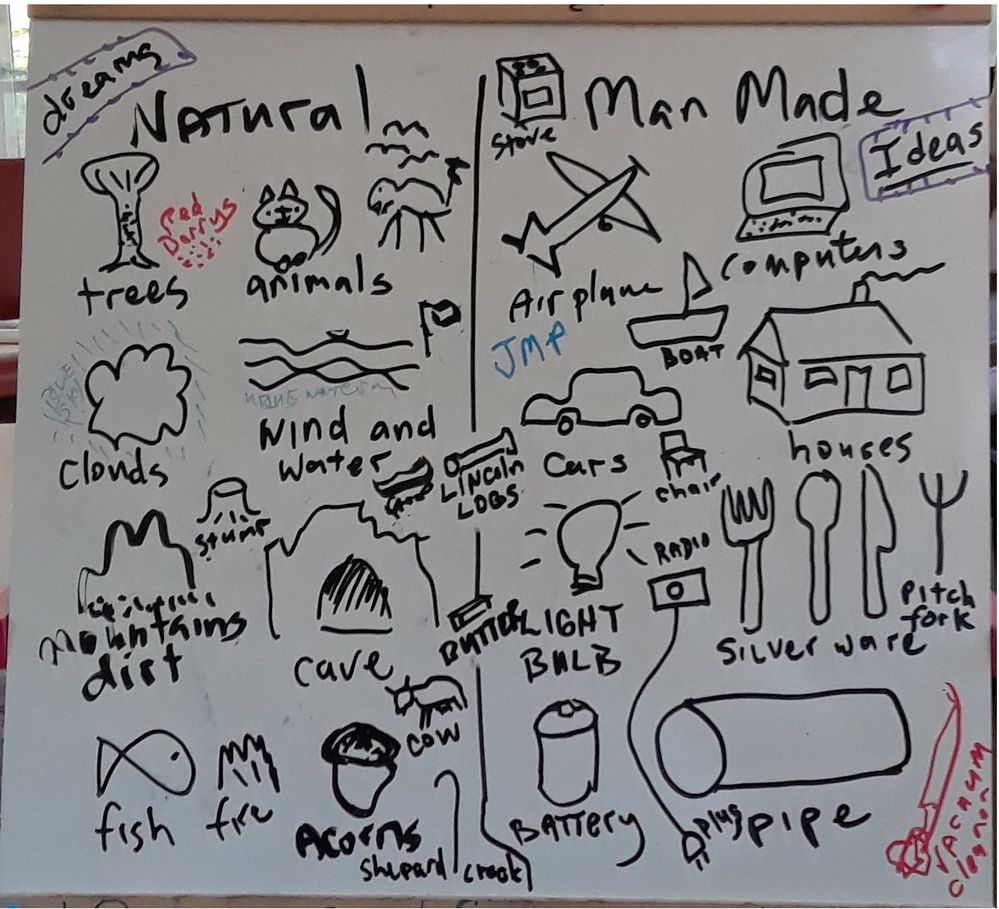 dreams
Natural
Man Made
Ideas
stove
Red
Berrys
trees
animals
Airplane
computers
JMP
BOAT
BLUE
SKY
Clouds
Wind and
Water
LINCOLN
LOGS
Cars
chair
houses
stump
RADIO
Mountains
dirt
cave
LIGHT
BULB
Silver ware
Pitch
fork
cow
fish
fire
Acorns
Shepard crook
BATTERY
plug
pipe
VACUUM
cleanor